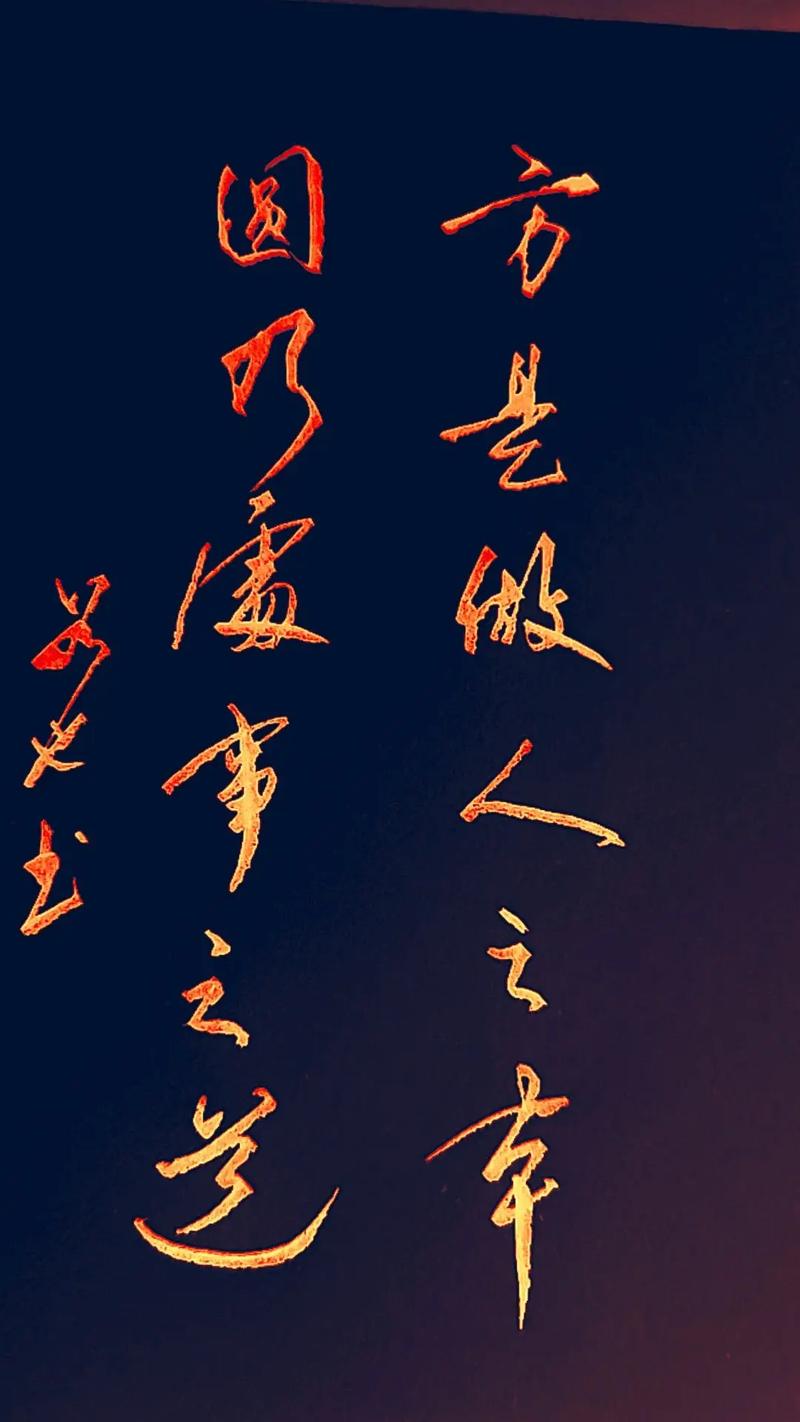 方是做人之本
圆乃處事之道
书